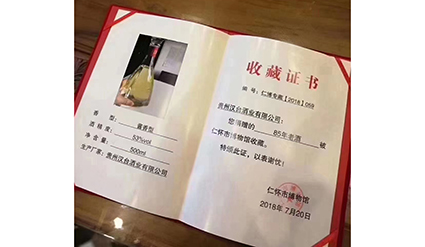 香 型：酱香型
酒 精 度：53%vol
净 含 量：500ml
生产厂家：贵州汉台酒业有限公司
收藏证书
编 号：仁博专藏［2018］059
贵州汉台酒业有限公司：
您捐赠的 85年老酒 被
仁怀市博物馆收藏。
特颁此证，以表谢忱！
仁怀市博物馆
2018年7月20日